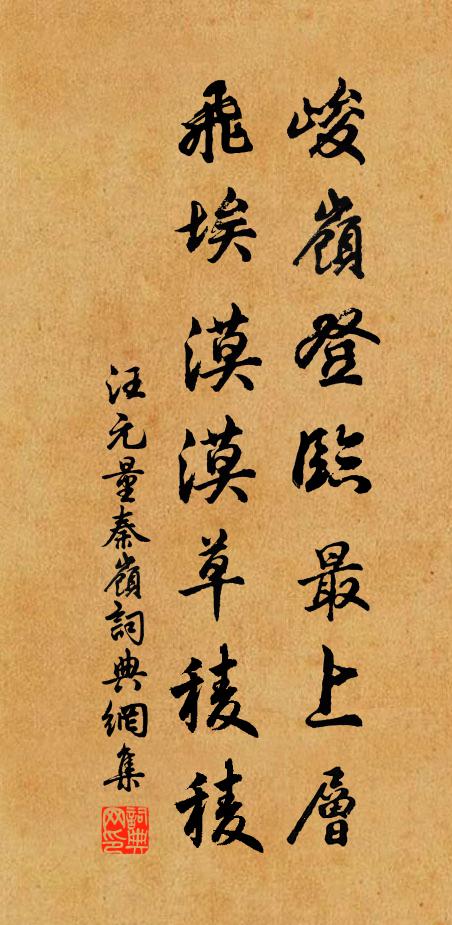 峻嶺登臨最上層
飛埃漠漠草稜稜
汪元量秦嶺詞典網集
詞典網印